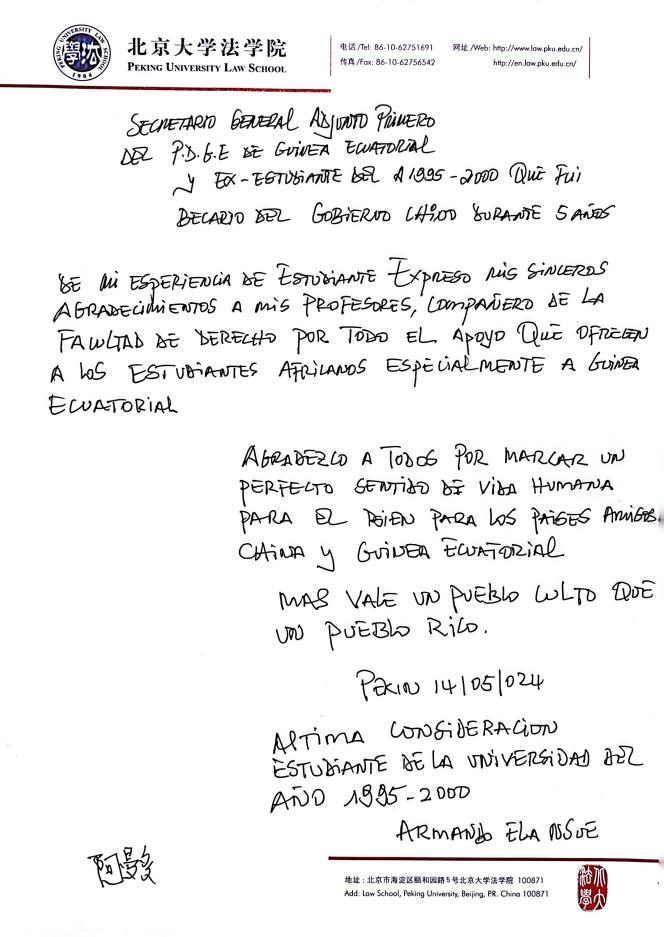 北京大学法学院
PEKING UNIVERSITY LAW SCHOOL
PEKING UNIVERSITY LAW SCHOOL
1904
电话/Tel: 86-10-62751691 网址/Web: http://www.law.pku.edu.cn/
传真/Fax: 86-10-62756542 http://en.law.pku.edu.cn/
SECRETARIO GENERAL ADJUNTO PRIMERO
DEL P.D.G.E DE GUINEA ECUATORIAL
y EX-ESTUDIANTE DEL A 1995-2000 QUE FUI
BECARIO DEL GOBIERNO CHINO DURANTE 5 AÑOS
DE MI ESPERIENCIA DE ESTUDIANTE EXPRESO MIS SINCEROS
AGRADECIMIENTOS A MIS PROFESORES, COMPAÑERO DE LA
FACULTAD DE DERECHO POR TODO EL APOYO QUE OFRECEN
A LOS ESTUDIANTES AFRICANOS ESPECIALMENTE A GUINEA
ECUATORIAL
AGRADEZCO A TODOS POR MARCAR UN
PERFECTO SENTIDO DE VIDA HUMANA
PARA EL BIEN PARA LOS PAISES AMIGOS
CHINA y GUINEA ECUATORIAL
MAS VALE UN PUEBLO CULTO QUE
UN PUEBLO RICO.
PEKIN 14/05/024
ALTIMA CONSIDERACION
ESTUDIANTE DE LA UNIVERSIDAD DEL
AÑO 1995-2000
ARMANDO ELA NSUE
阿曼多
地址: 北京市海淀区颐和园路5号北京大学法学院 100871
Add: Law School, Peking University, Beijing, P.R. China 100871